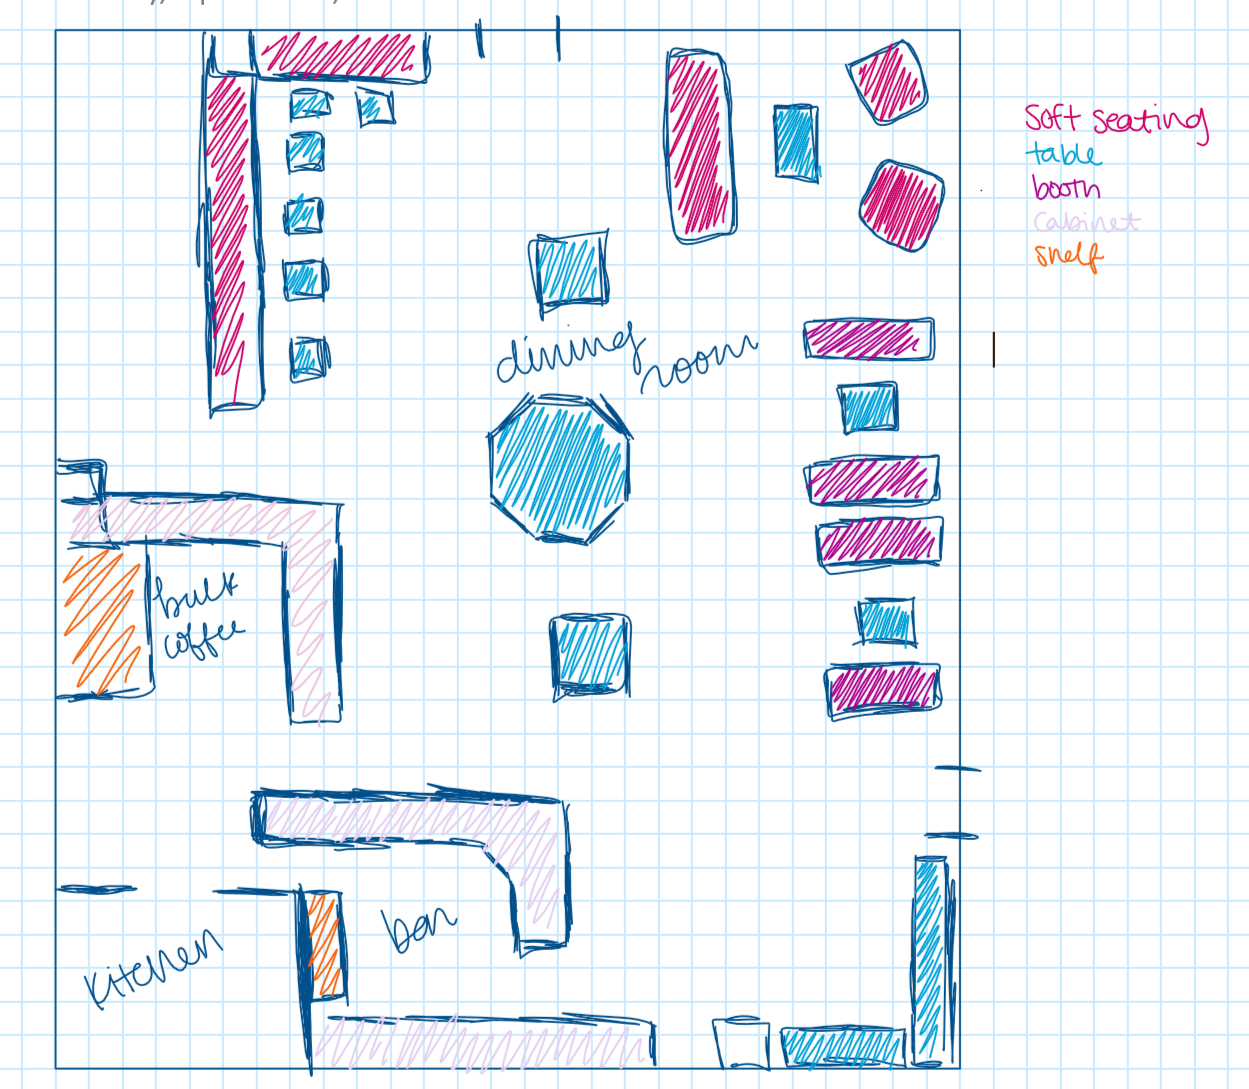 soft seating
table
booth
cabinet
shelf
dining
room
bulk
coffee
bar
kitchen